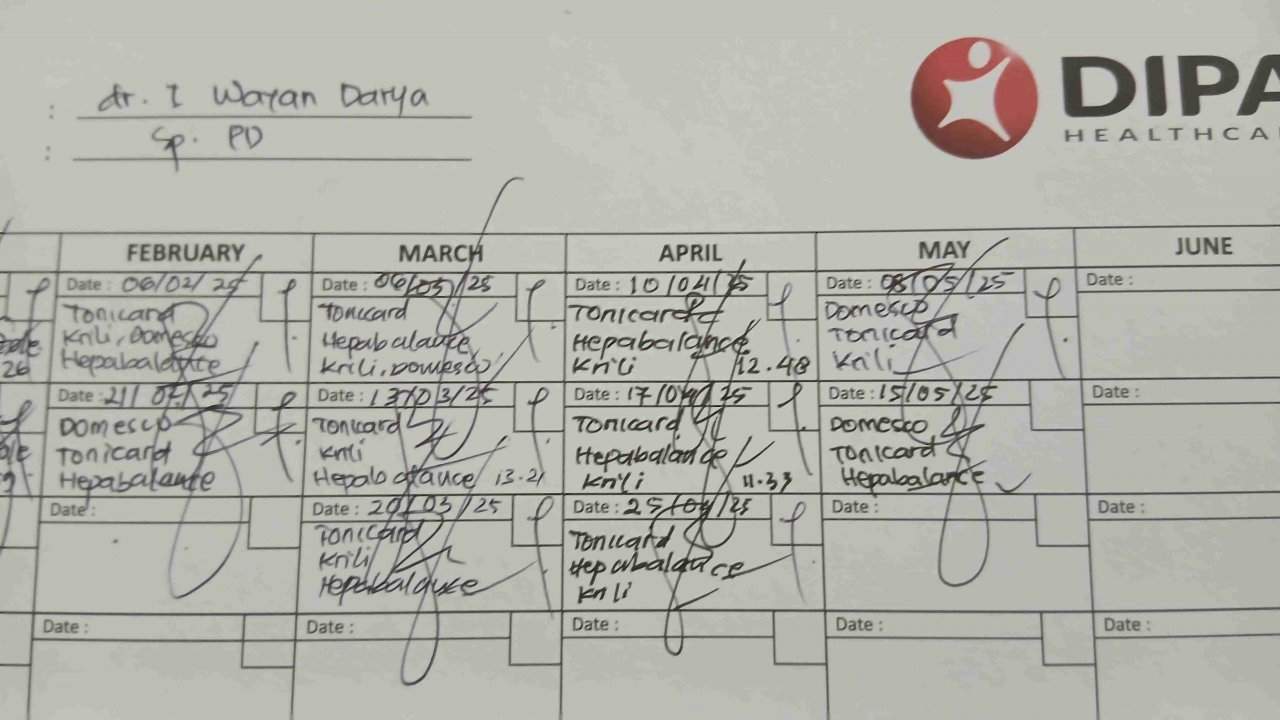 : dr. I Wayan Darya
: Sp. PD
DIPA
HEALTHCA
FEBRUARY MARCH APRIL MAY JUNE
Date : 06/02/25 Date : 06/03/25 Date : 10/04/25 Date : 08/05/25 Date :
Tonicard Tonicard Tonicard Domesco
Krili, Domesco Hepabalance Hepabalance Tonicard
26 Hepabalance Krili, Domesco Krili 12.48 Krili
Date : 21/02/25 Date : 13/03/25 Date : 17/04/25 Date : 15/05/25 Date :
Domesco Tonicard Tonicard Domesco
Tonicard Krili Hepabalance Tonicard
Hepabalance Hepabalance 13.21 Krili 11.33 Hepabalance
Date : Date : 20/03/25 Date : 25/04/25 Date : Date :
Tonicard Tonicard
Krili Hepabalance
Hepabalance Krili
Date : Date : Date : Date : Date :